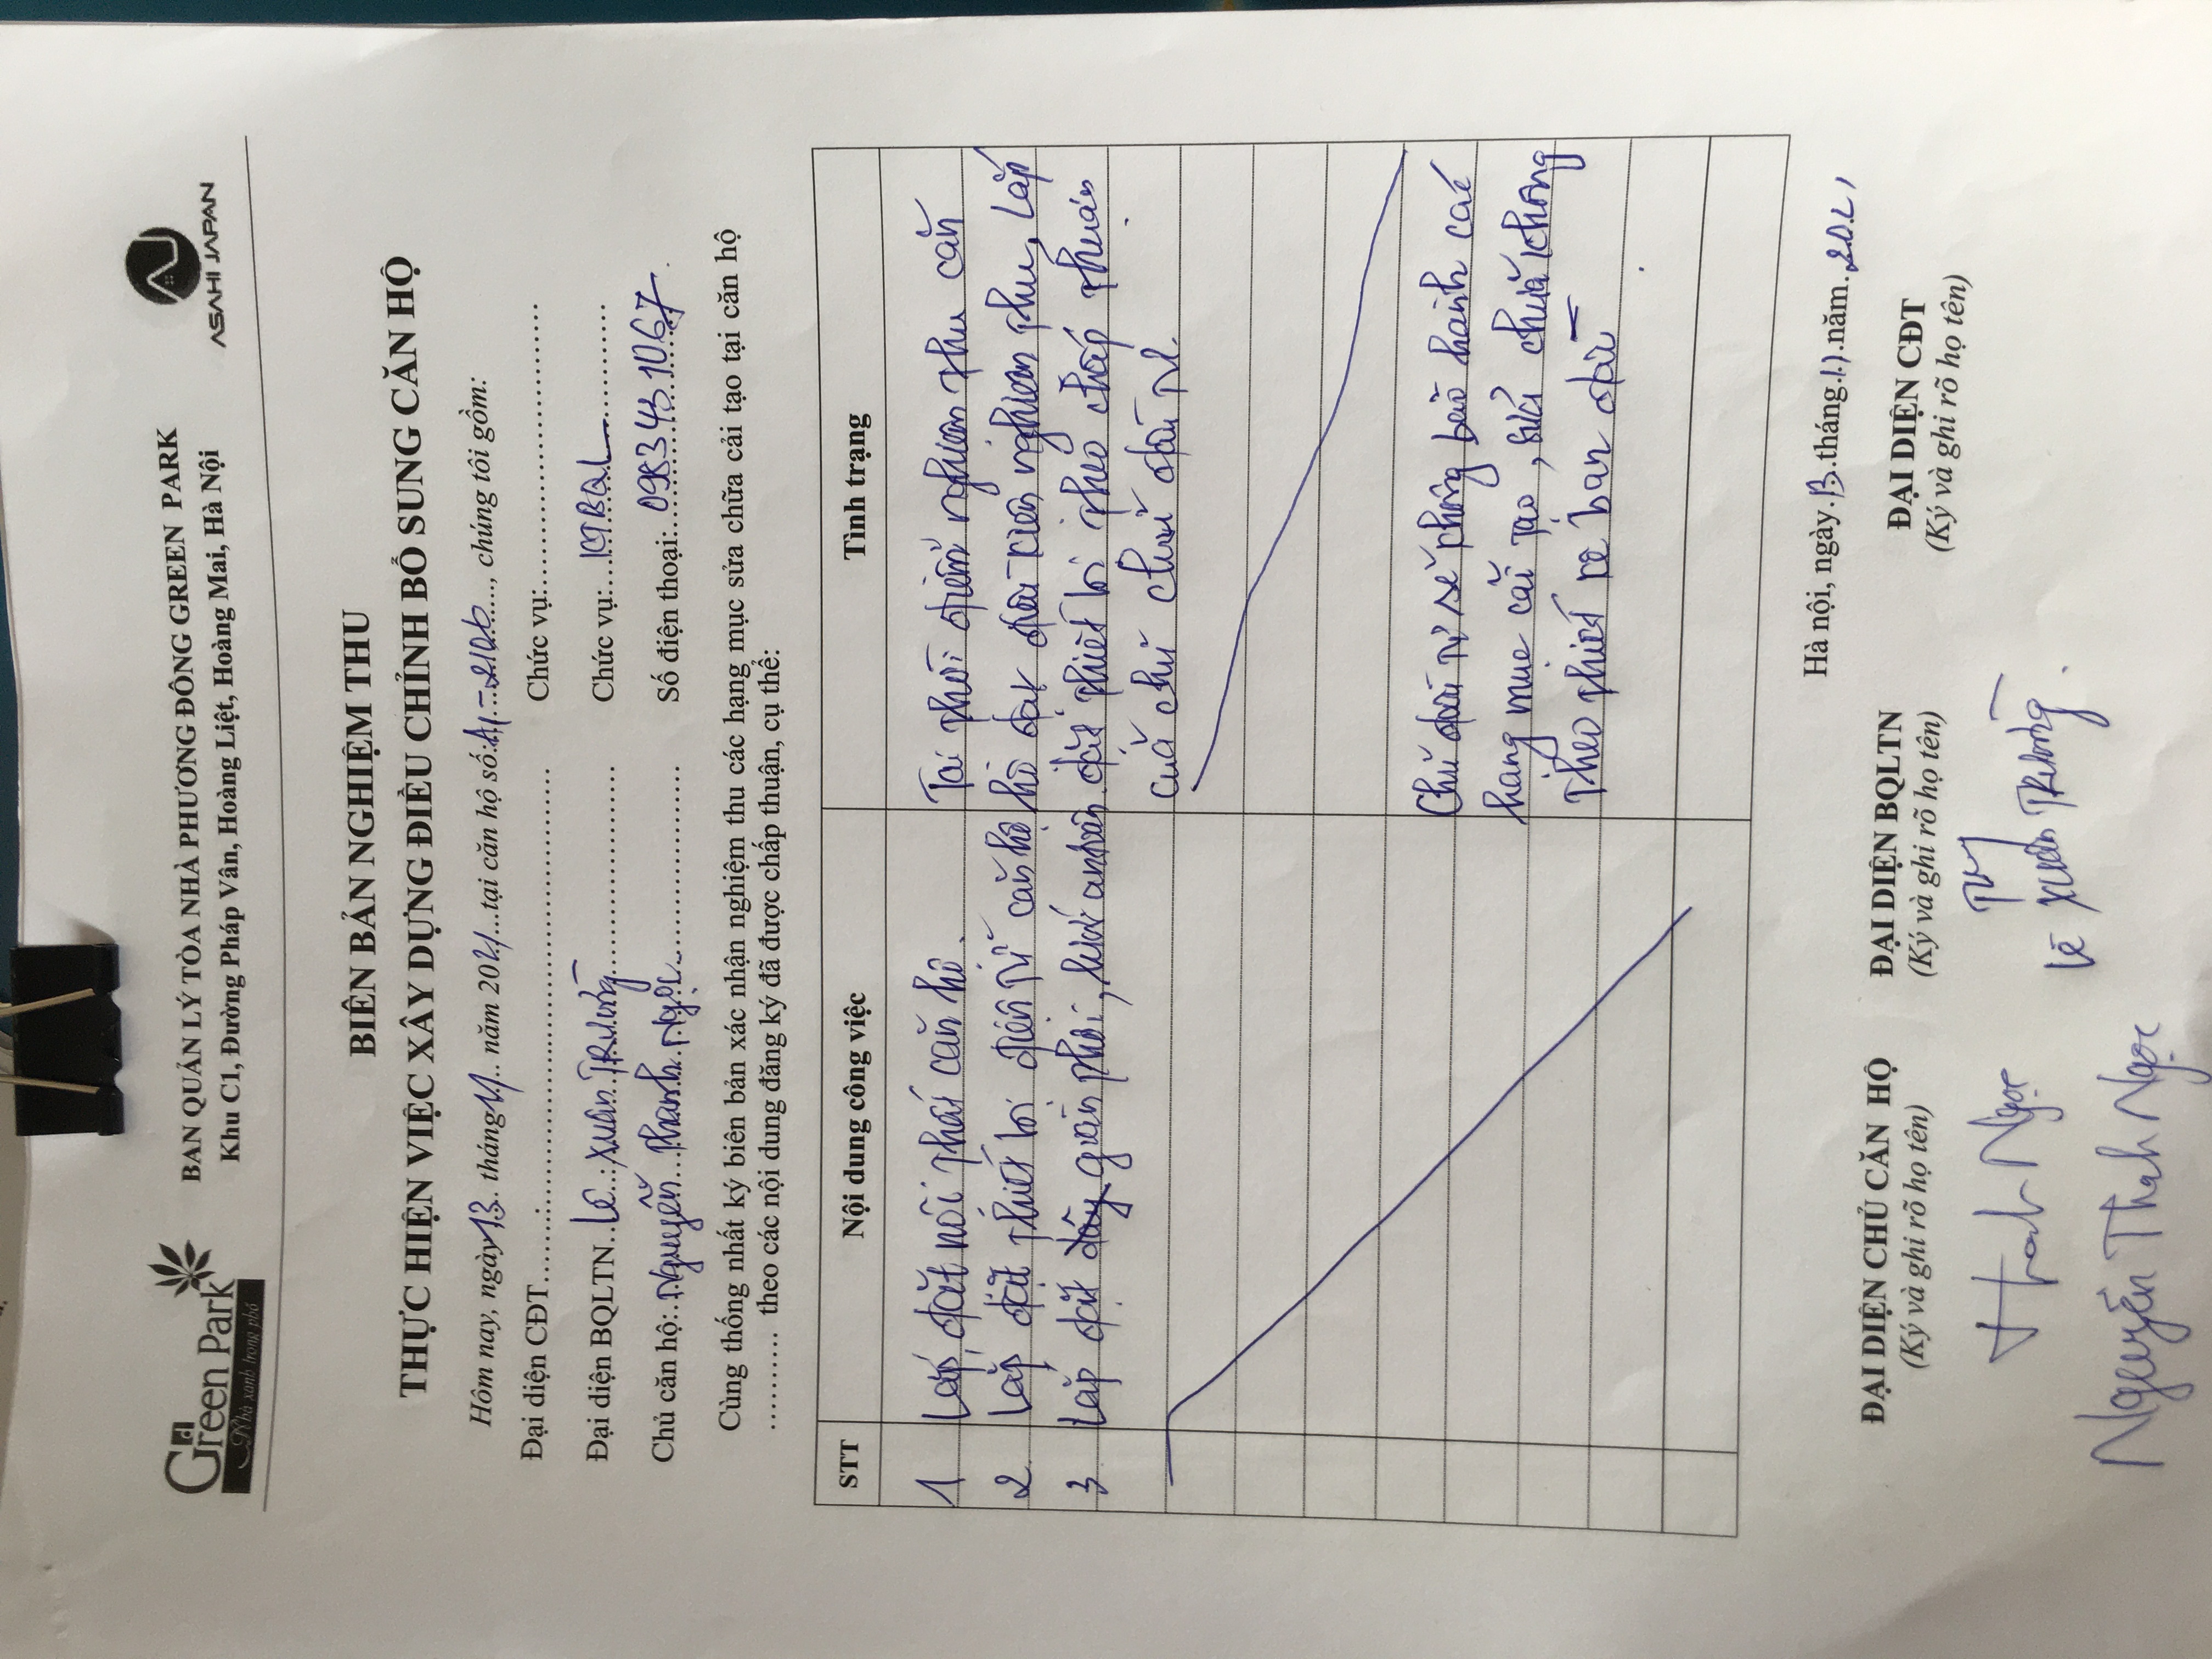 Green Park
Nhà xanh trong phố
BAN QUẢN LÝ TÒA NHÀ PHƯƠNG ĐÔNG GREEN PARK
Khu C1, Đường Pháp Vân, Hoàng Liệt, Hoàng Mai, Hà Nội
ASAHI JAPAN
BIÊN BẢN NGHIỆM THU
THỰC HIỆN VIỆC XÂY DỰNG ĐIỀU CHỈNH BỔ SUNG CĂN HỘ
Hôm nay, ngày 13 tháng 11 năm 2021 tại căn hộ số: A1-2106, chúng tôi gồm:
Đại diện CĐT.......:........................................ Chức vụ:............................
Đại diện BQLTN Lê Xuân Trường Chức vụ: KTBQL
Chủ căn hộ: Nguyễn Thanh Ngọc Số điện thoại:
Cùng thống nhất ký biên bản xác nhận nghiệm thu các hạng mục sửa chữa cải tạo tại căn hộ
.......... theo các nội dung đăng ký đã được chấp thuận, cụ thể:
STT Nội dung công việc Tình trạng
1 Lắp đặt nội thất căn hộ. Tại thời điểm nghiệm thu căn
2 Lắp đặt thiết bị điện tử căn hộ hộ đạt điều kiện nghiệm thu, lắp
3 Lắp đặt dây giàn phơi, lưới an toàn đặt thiết bị theo chấp thuận
của chủ chủ đầu tư.
Chủ đầu tư sẽ không bảo hành các
hạng mục cải tạo, sửa chữa không
theo thiết kế ban đầu
Hà nội, ngày 13 tháng 11 năm 2021
ĐẠI DIỆN CHỦ CĂN HỘ ĐẠI DIỆN BQLTN ĐẠI DIỆN CĐT
(Ký và ghi rõ họ tên) (Ký và ghi rõ họ tên) (Ký và ghi rõ họ tên)
Thanh Ngọc
Lê Xuân Trường
Nguyễn Thanh Ngọc